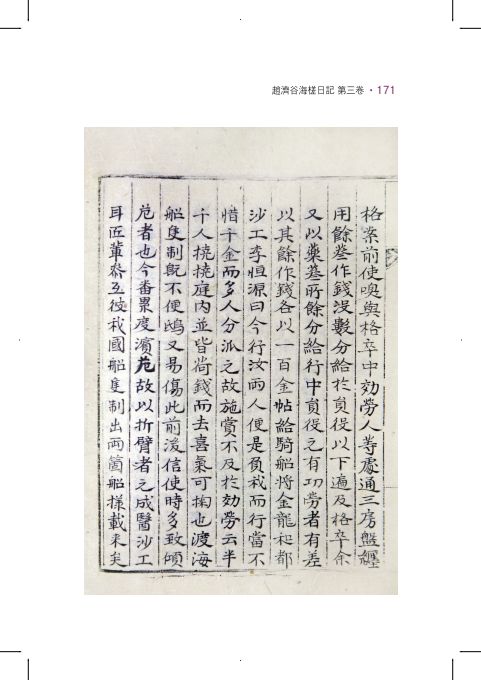 趙濟谷海槎日記 第三卷 • 171
格䓁前使喚與格卒中効勞人等處通三房盤纏
用餘蔘作錢沒數分給於員役以下遍及格卒余
又以藥蔘所餘分給行中員役之有功勞者有差
以其餘作錢各以一百金帖給騎船將金龍和都
沙工李恒源曰今行汝兩人便是負我而行當不
惜千金而多人分派之故施賞不及於効勞云半
千人撓撓庭內並皆荷錢而去喜氣可掬也渡海
船隻制旣不便鴟又易傷此前後信使時多致傾
危者也今番累度濱危故以折臂者之成醫沙工
耳匠輩叅互彼我國船隻制出兩箇船様載来矣